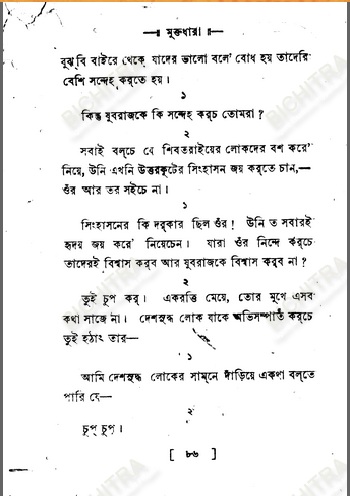 মুক্তধারা
বুঝ্‌বি বাইরে থেকে যাদের ভালো বলে' বোধ হয় তাদেরি
বেশি সন্দেহ কর্‌তে হয়।
১
কিন্তু যুবরাজকে কি সন্দেহ কর্‌চ তোমরা ?
২
সবাই বল্‌চে যে শিবতরাইয়ের লোকদের বশ করে'
নিয়ে, উনি এখনি উত্তরকূটের সিংহাসন জয় কর্‌তে চান,—
ওঁর আর তর সইচে না।
১
সিংহাসনের কি দর্‌কার ছিল ওঁর ! উনি ত সবারই
হৃদয় জয় করে' নিয়েচেন। যারা ওঁর নিন্দে কর্‌চে
তাদেরই বিশ্বাস কর্‌ব আর যুবরাজকে বিশ্বাস কর্‌ব না ?
২
তুই চুপ কর্‌। একরত্তি মেয়ে, তোর মুখে এসব
কথা সাজে না। দেশসুদ্ধ লোক যাকে অভিসম্পাত কর্‌চে
তুই হঠাৎ তার—
১
আমি দেশসুদ্ধ লোকের সাম্‌নে দাঁড়িয়ে একথা বল্‌তে
পারি যে—
২
চুপ্‌ চুপ্‌।
[ ৮৬ ]
BICHITRA